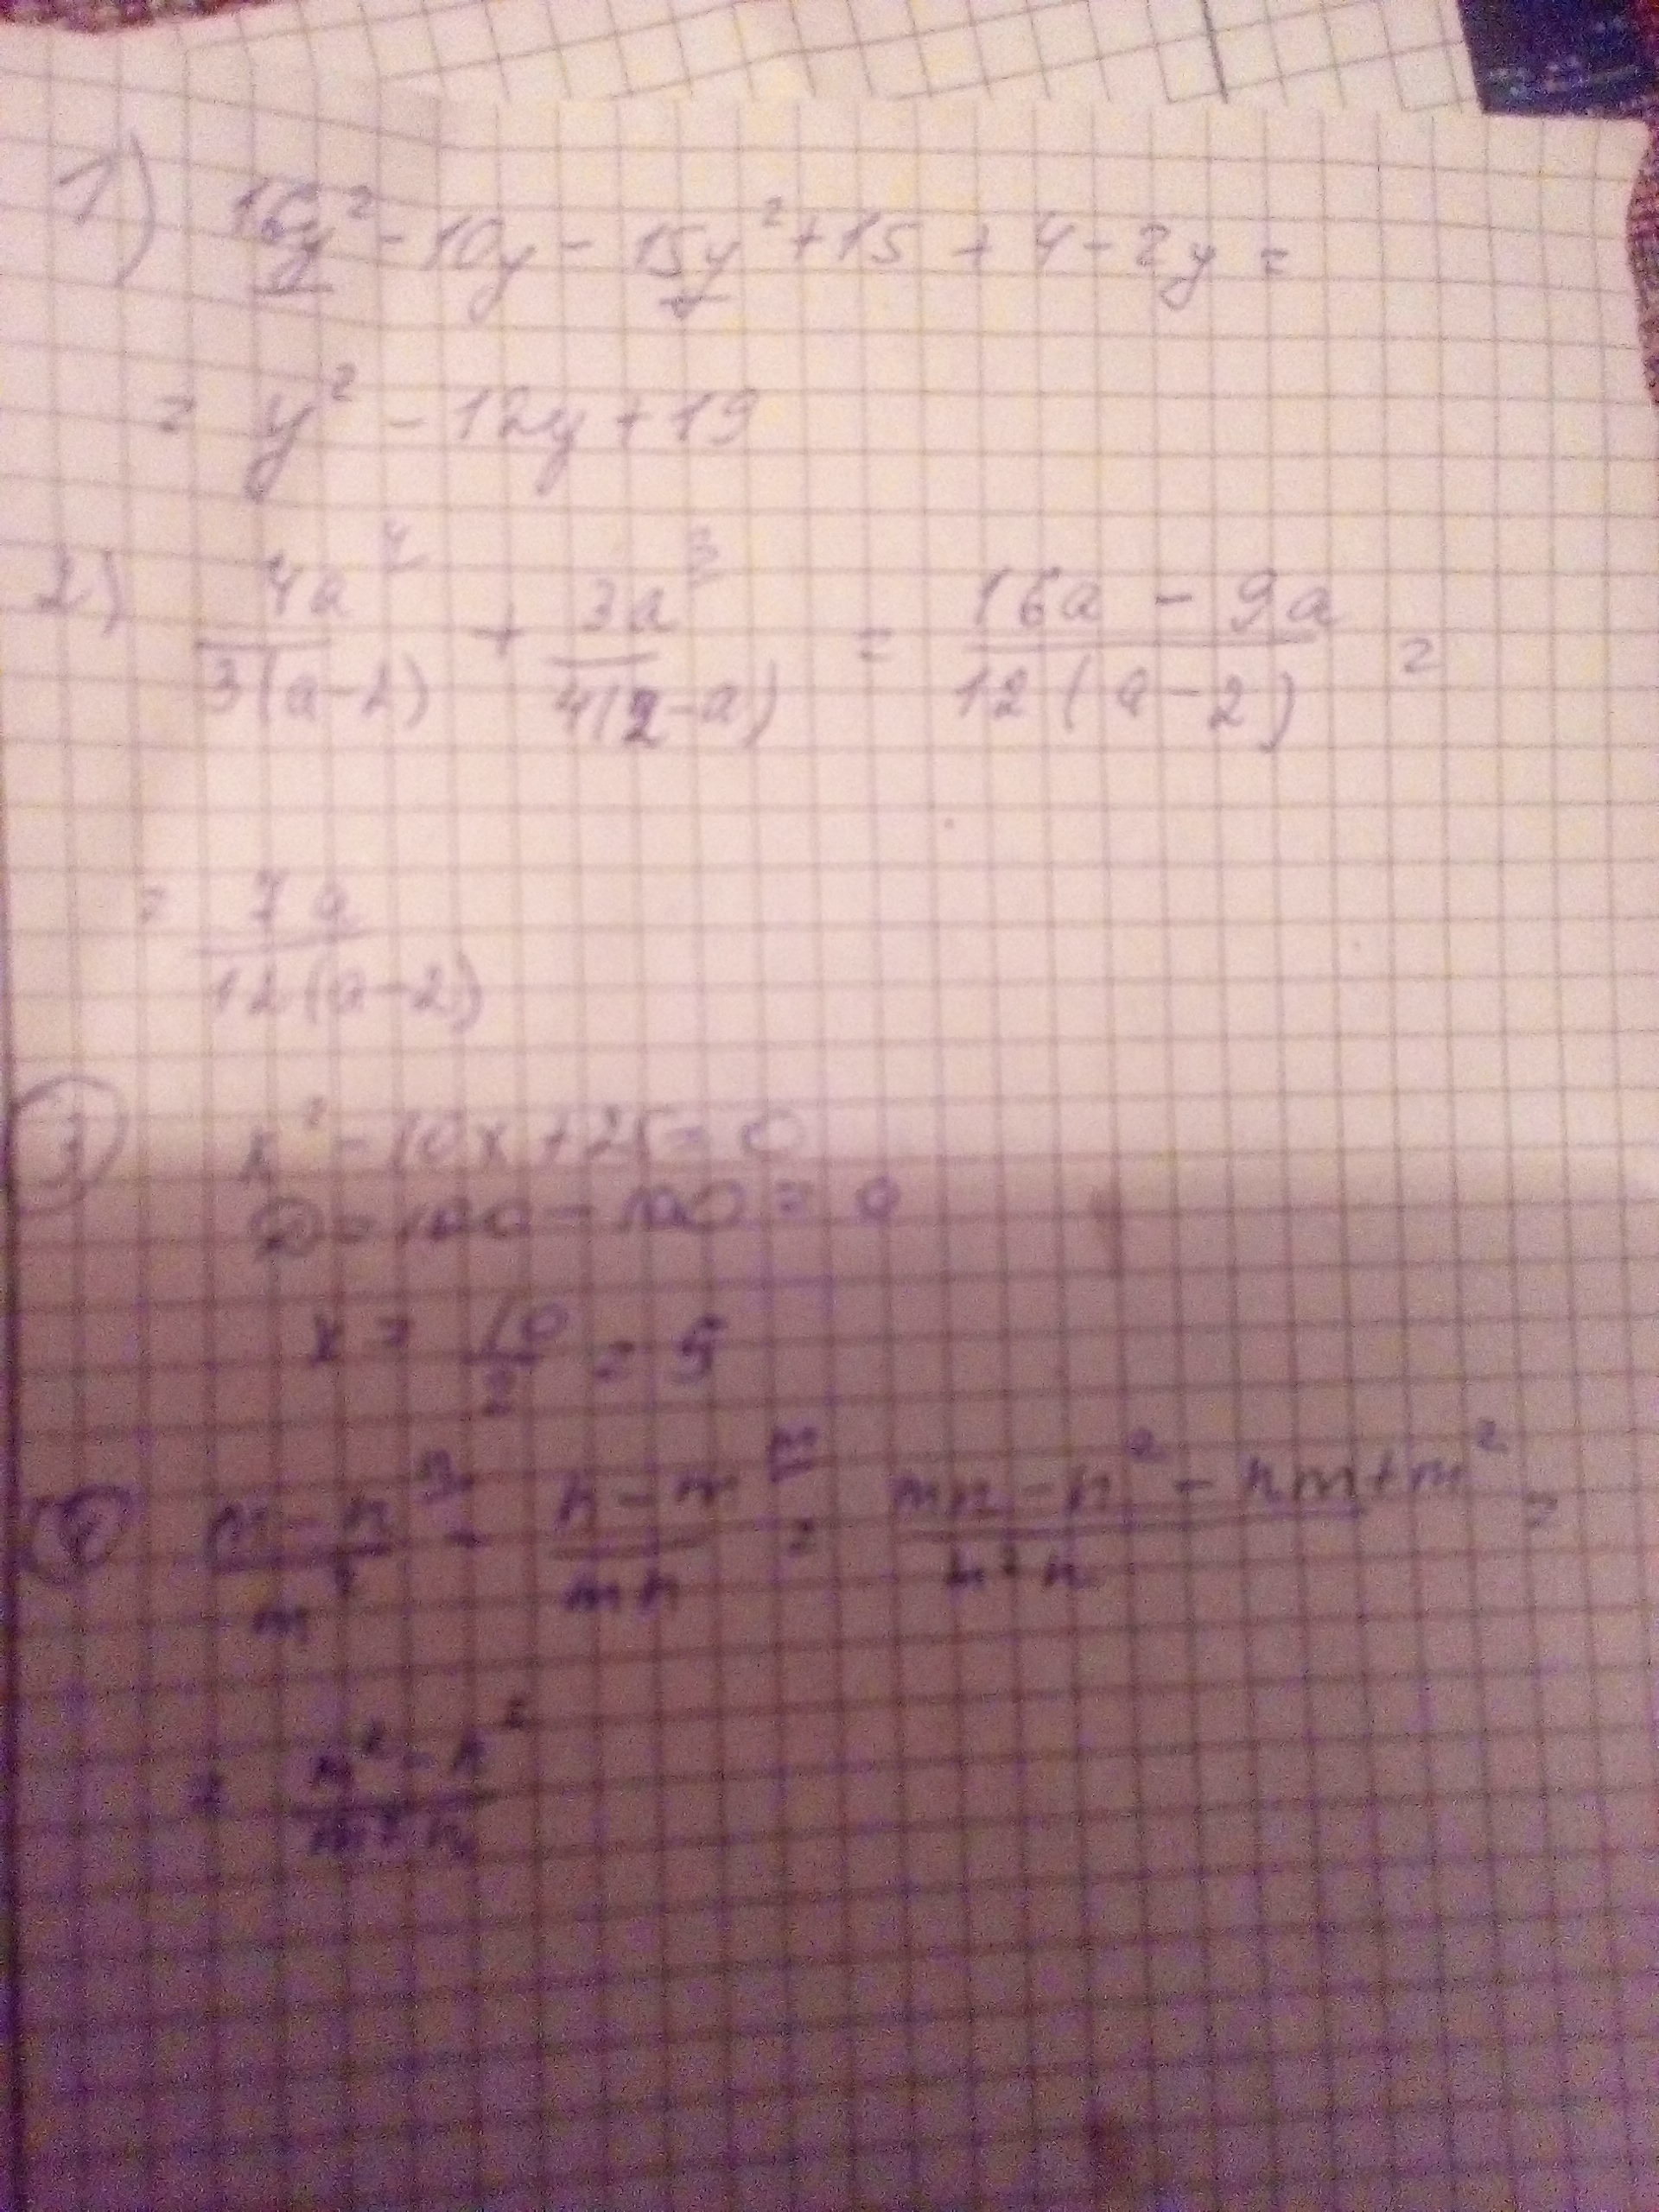 1) 16y² - 10y - 15y² + 15 + 4 - 2y =
= y² - 12y + 19
2) 4a⁴/3(a-2) + 3a³/4(2-a) = 16a - 9a/12(a-2) =
= 7a/12(a-2)
3 x² - 10x + 25 = 0
D = 100 - 100 = 0
x = 10/2 = 5
4 m-n ⁿ/m² - n-m ᵐ/mn = mn - n² - nm + m²/m²n =
= m² - n²/m²n